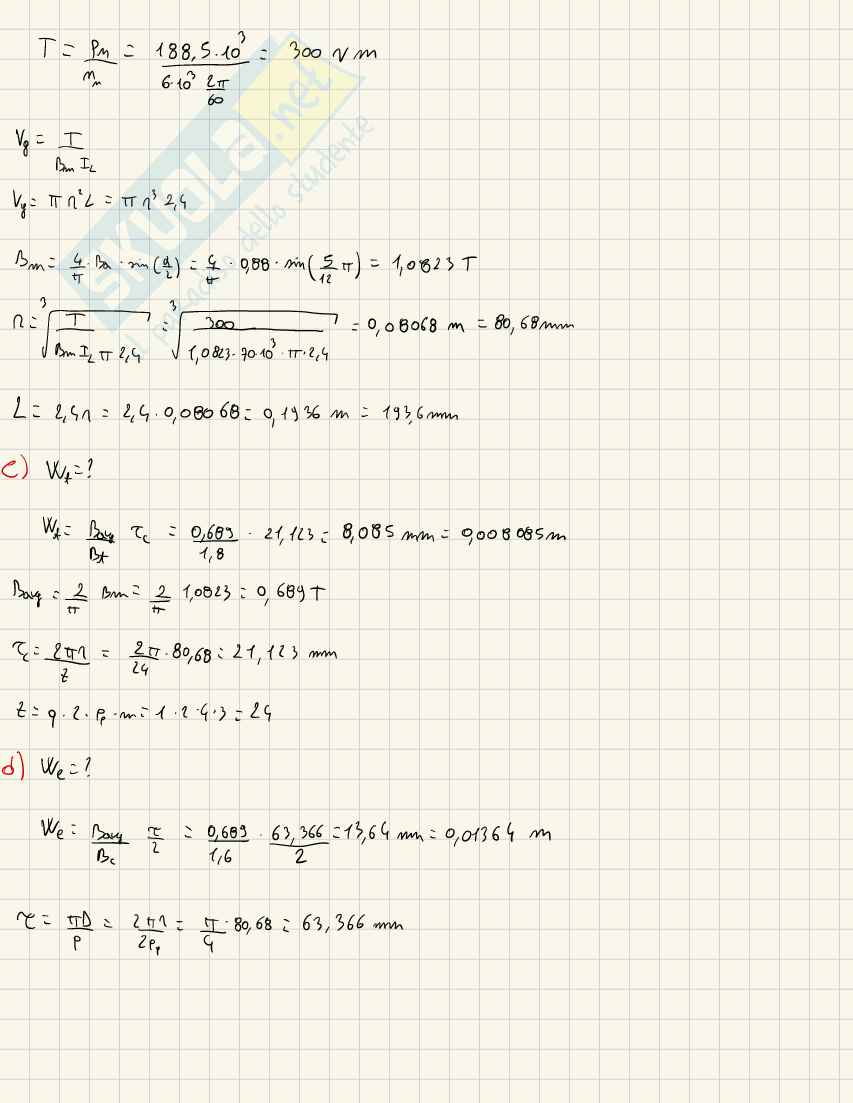 T = Pn/nn = 188,5·10³ / (6·10³ 2π/60) = 300 Nm
Vg = T / (Bm IL)
Vg = π r² L = π r³ 2,4
Bm = 4/π · Ba · sin(α/2) = 4/π · 0,88 · sin(5/12 π) = 1,0823 T
r = ³√(T / (Bm IL π 2,4)) = ³√(300 / (1,0823·70·10³·π·2,4)) = 0,08068 m = 80,68 mm
L = 2,4r = 2,4·0,08068 = 0,1936 m = 193,6 mm
c) Wt = ?
Wt = Bavg/Bt τc = 0,689/1,8 · 21,123 = 8,085 mm = 0,008085 m
Bavg = 2/π Bm = 2/π 1,0823 = 0,689 T
τc = 2πr/z = 2π/24 · 80,68 = 21,123 mm
z = q·2·Pp·m = 1·2·4·3 = 24
d) We = ?
We = Bavg/Bc τ/2 = 0,689/1,6 · 63,366/2 = 13,64 mm = 0,01364 m
τ = πD/p = 2πr/2Pp = π/4 · 80,68 = 63,366 mm
SKUOLA.net
il paradiso dello studente